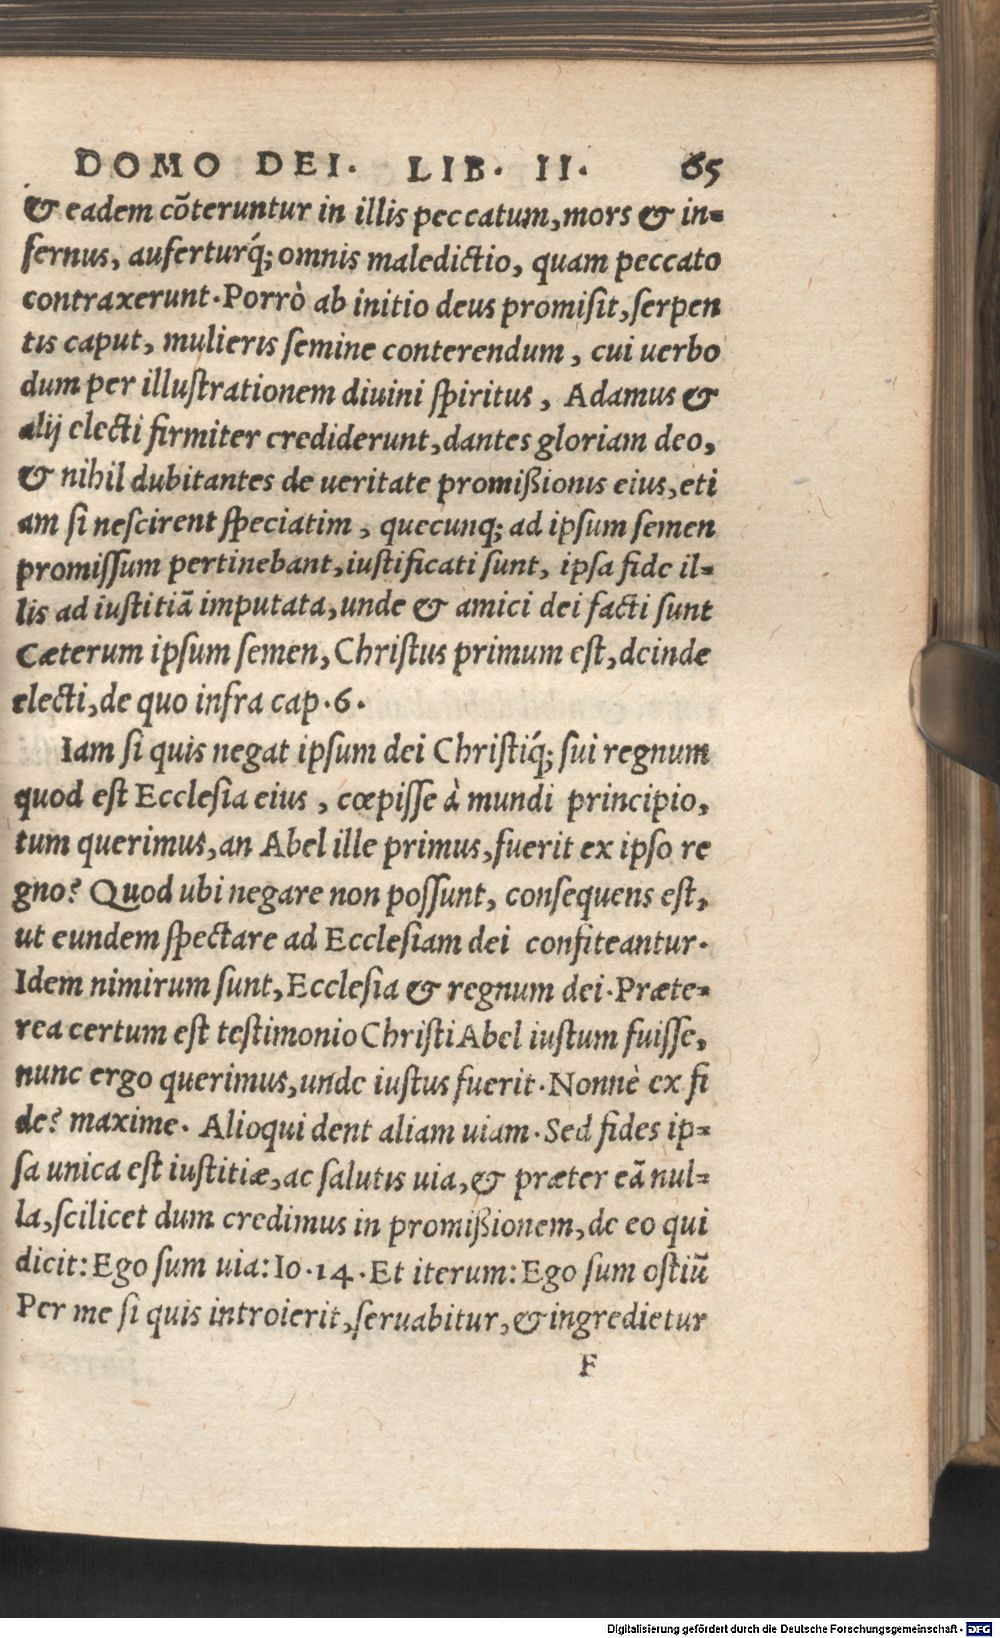 DOMO DEI. LIB. II. 65
& eadem cōteruntur in illis peccatum, mors & in-
fernus, auferturq́; omnis maledictio, quam peccato
contraxerunt. Porrò ab initio deus promisit, serpen
tis caput, mulieris semine conterendum, cui uerbo
dum per illustrationem diuini spiritus, Adamus &
alij electi firmiter crediderunt, dantes gloriam deo,
& nihil dubitantes de ueritate promißionis eius, eti
am si nescirent speciatim, quecunq; ad ipsum semen
promissum pertinebant, iustificati sunt, ipsa fide il-
lis ad iustitiā imputata, unde & amici dei facti sunt
Cæterum ipsum semen, Christus primum est, deinde
electi, de quo infra cap. 6.
Iam si quis negat ipsum dei Christiq́; sui regnum
quod est Ecclesia eius, cœpisse à mundi principio,
tum querimus, an Abel ille primus, fuerit ex ipso re
gno? Quod ubi negare non possunt, consequens est,
ut eundem spectare ad Ecclesiam dei confiteantur.
Idem nimirum sunt, Ecclesia & regnum dei. Præte-
rea certum est testimonio Christi Abel iustum fuisse,
nunc ergo querimus, unde iustus fuerit. Nonnè ex fi
de? maxime. Alioqui dent aliam uiam. Sed fides ip-
sa unica est iustitiæ, ac salutis uia, & præter eā nul-
la, scilicet dum credimus in promißionem, de eo qui
dicit: Ego sum uia: Io. 14. Et iterum: Ego sum ostiū
Per me si quis introierit, seruabitur, & ingredietur
F
Digitalisierung gefördert durch die Deutsche Forschungsgemeinschaft - DFG